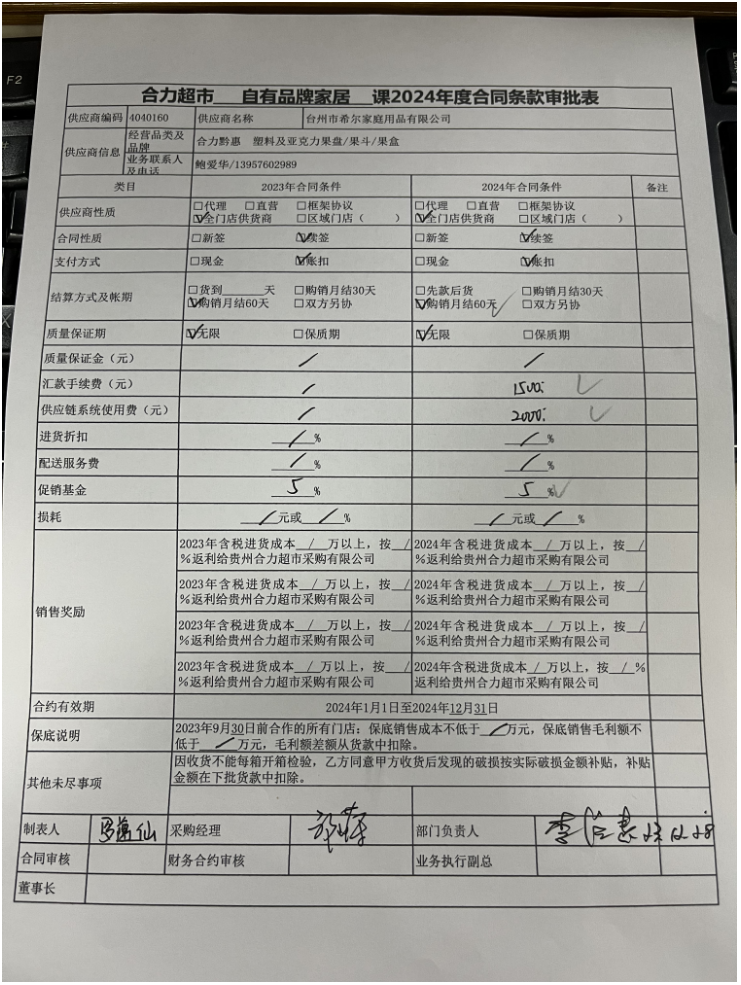 F2
合力超市 自有品牌家居 课2024年度合同条款审批表
供应商编码 4040160 供应商名称 台州市希尔家庭用品有限公司
供应商信息 经营品类及品牌 合力黔惠 塑料及亚克力果盘/果斗/果盒
业务联系人及电话 鲍爱华/13957602989
类目 2023年合同条件 2024年合同条件 备注
供应商性质 □代理 □直营 □框架协议 □代理 □直营 □框架协议
☑全门店供货商 □区域门店（ ） ☑全门店供货商 □区域门店（ ）
合同性质 □新签 ☑续签 □新签 ☑续签
支付方式 □现金 ☑账扣 □现金 ☑账扣
结算方式及帐期 □货到______天 □购销月结30天 □先款后货 □购销月结30天
☑购销月结60天 □双方另协 ☑购销月结60天 ✓ □双方另协
质量保证期 ☑无限 □保质期 ☑无限 □保质期
质量保证金（元） / /
汇款手续费（元） / 1500 ✓
供应链系统使用费（元） / 2000 ✓
进货折扣 / % / %
配送服务费 / % / %
促销基金 5 % 5 % ✓
损耗 / 元或 / % / 元或 / %
销售奖励
2023年含税进货成本 / 万以上，按 / %返利给贵州合力超市采购有限公司 2024年含税进货成本 / 万以上，按 / %返利给贵州合力超市采购有限公司
2023年含税进货成本 / 万以上，按 / %返利给贵州合力超市采购有限公司 2024年含税进货成本 / 万以上，按 / %返利给贵州合力超市采购有限公司
2023年含税进货成本 / 万以上，按 / %返利给贵州合力超市采购有限公司 2024年含税进货成本 / 万以上，按 / %返利给贵州合力超市采购有限公司
2023年含税进货成本 / 万以上，按 / %返利给贵州合力超市采购有限公司 2024年含税进货成本 / 万以上，按 / %返利给贵州合力超市采购有限公司
合约有效期 2024年1月1日至2024年12月31日
保底说明 2023年9月30日前合作的所有门店：保底销售成本不低于 / 万元，保底销售毛利额不
低于 / 万元，毛利额差额从货款中扣除。
其他未尽事项 因收货不能每箱开箱检验，乙方同意甲方收货后发现的破损按实际破损金额补贴，补贴
金额在下批货款中扣除。
制表人 采购经理 部门负责人 李
合同审核 财务合约审核 业务执行副总
董事长